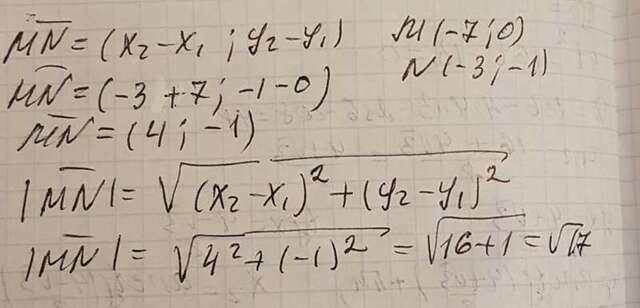 MN = (x₂ - x₁ ; y₂ - y₁) M (-7 ; 0)
N (-3 ; -1)
MN = (-3 + 7 ; -1 - 0)
MN = (4 ; -1)
|MN| = √((x₂ - x₁)² + (y₂ - y₁)²)
|MN| = √(4² + (-1)²) = √(16 + 1) = √17